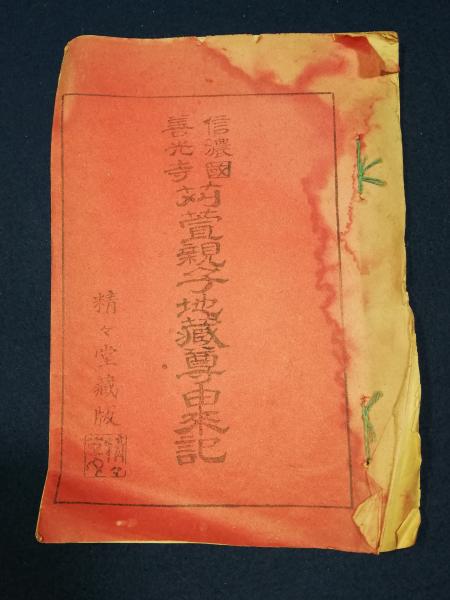 信濃國
善光寺
苅萱親子地藏尊由来記
精々堂藏版